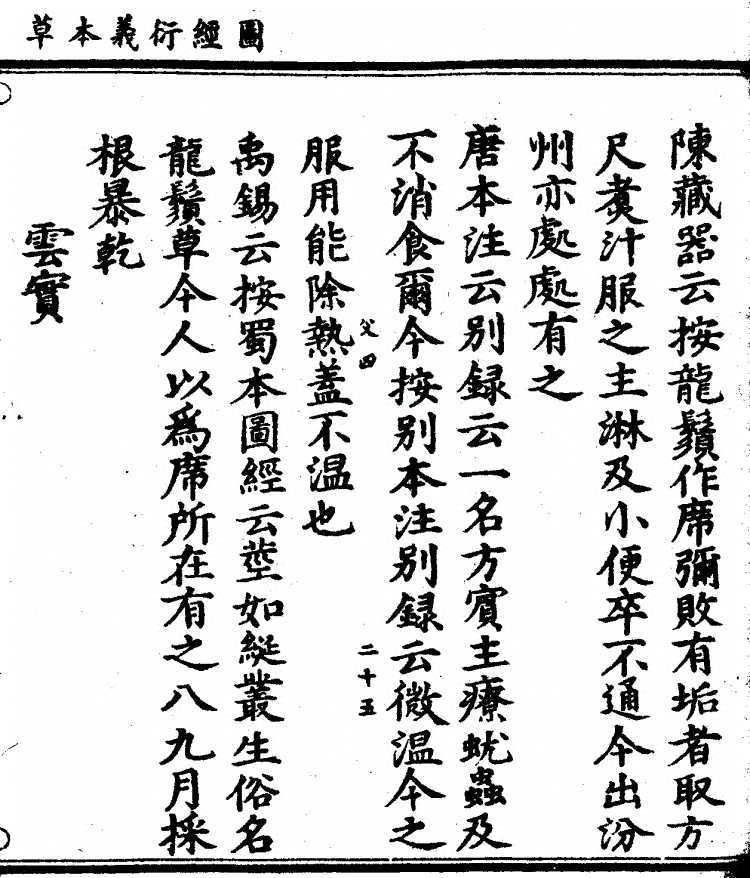 圖經衍義本草
陳藏器云按龍鬚作席彌敗有垢者取方
尺煑汁服之主淋及小便卒不通今出汾
州亦處處有之
唐本注云别録云一名方賓主療蚘蟲及
不消食爾今按别本注别録云微温今之
父四
二十五
服用能除熱蓋不温也
禹錫云按蜀本圖經云莖如綖叢生俗名
龍鬚草今人以爲席所在有之八九月採
根暴乾
雲實